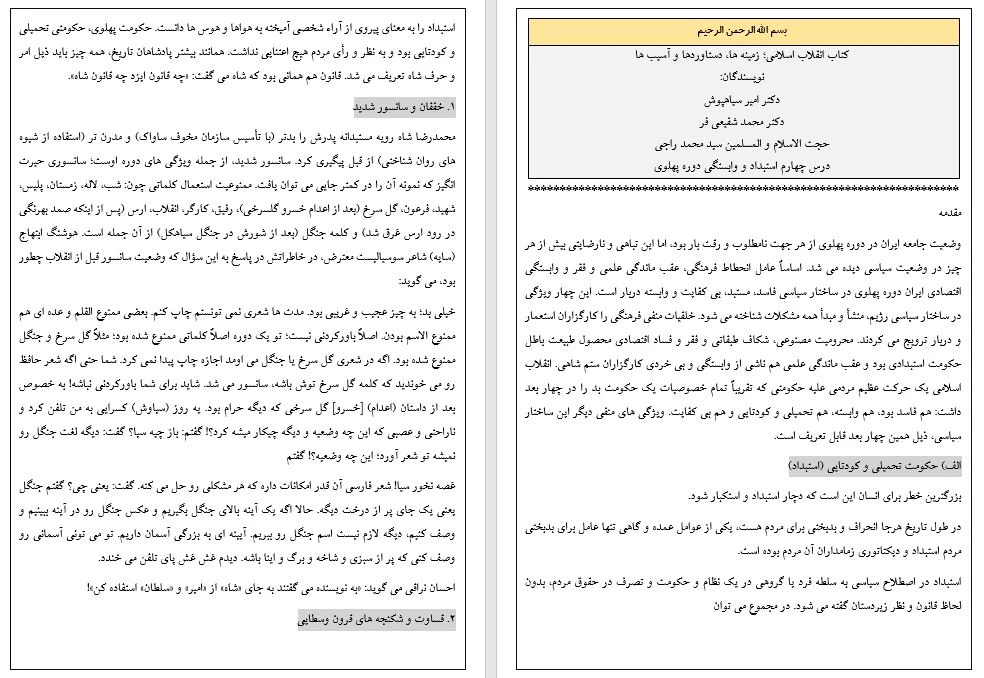 بسم الله الرحمن الرحیم
کتاب انقلاب اسلامی؛ زمینه ها، دستاوردها و آسیب ها
نویسندگان:
دکتر امیر سیاهپوش
دکتر محمد شفیعی فر
حجت الاسلام و المسلمین سید محمد راجی
درس چهارم استبداد و وابستگی دوره پهلوی
مقدمه
وضعیت جامعه ایران در دوره پهلوی از هر جهت نامطلوب و رقت بار بود، اما این تباهی و نارضایتی بیش از هر
چیز در وضعیت سیاسی دیده می شد. اساساً عامل انحطاط فرهنگی، عقب ماندگی علمی و فقر و وابستگی
اقتصادی ایران دوره پهلوی در ساختار سیاسی فاسد، مستبد، بی کفایت و وابسته دربار است. این چهار ویژگی
در ساختار سیاسی رژیم، منشأ و مبدأ همه مشکلات شناخته می شود. خلقیات منفی فرهنگی را کارگزاران استعمار
و دربار ترویج می کردند. محرومیت مصنوعی، شکاف طبقاتی و فقر و فساد اقتصادی محصول طبیعت باطل
حکومت استبدادی بود و عقب ماندگی علمی هم ناشی از وابستگی و بی خردی کارگزاران ستم شاهی. انقلاب
اسلامی یک حرکت عظیم مردمی علیه حکومتی که تقریباً تمام خصوصیات یک حکومت بد را در چهار بعد
داشت: هم فاسد بود، هم وابسته، هم تحمیلی و کودتایی و هم بی کفایت. ویژگی های منفی دیگر این ساختار
سیاسی، ذیل همین چهار بعد قابل تعریف است.
الف) حکومت تحمیلی و کودتایی (استبداد)
بزرگترین خطر برای انسان این است که دچار استبداد و استکبار شود.
در طول تاریخ هرجا انحراف و بدبختی برای مردم هست، یکی از عوامل عمده و گاهی تنها عامل برای بدبختی
مردم استبداد و دیکتاتوری زمامداران آن مردم بوده است.
استبداد در اصطلاح سیاسی به سلطه فرد یا گروهی در یک نظام و حکومت و تصرف در حقوق مردم، بدون
لحاظ قانون و نظر زیردستان گفته می شود. در مجموع می توان
استبداد را به معنای پیروی از آراء شخصی آمیخته به هواها و هوس ها دانست. حکومت پهلوی، حکومتی تحمیلی
و کودتایی بود و به نظر و رأی مردم هیچ اعتنایی نداشت. همانند بیشتر پادشاهان تاریخ، همه چیز باید ذیل امر
و حرف شاه تعریف می شد. قانون هم همانی بود که شاه می گفت: «چه قانون ایزد چه قانون شاه».
۱. خفقان و سانسور شدید
محمدرضا شاه رویه مستبدانه پدرش را بدتر (با تأسیس سازمان مخوف ساواک) و مدرن تر (استفاده از شیوه
های روان شناختی) از قبل پیگیری کرد. سانسور شدید، از جمله ویژگی های دوره اوست؛ سانسوری حیرت
انگیز که نمونه آن را در کمتر جایی می توان یافت. ممنوعیت استعمال کلماتی چون: شب، لاله، زمستان، پلیس،
شهید، فرعون، گل سرخ (بعد از اعدام خسرو گلسرخی)، رفیق، کارگر، انقلاب، ارس (پس از اینکه صمد بهرنگی
در رود ارس غرق شد) و کلمه جنگل (بعد از شورش در جنگل سیاهکل) از آن جمله است. هوشنگ ابتهاج
(سایه) شاعر سوسیالیست معترض، در خاطراتش در پاسخ به این سؤال که وضعیت سانسور قبل از انقلاب چطور
بود، می گوید:
خیلی بد؛ یه چیز عجیب و غریبی بود. مدت ها شعری نمی تونستم چاپ کنم. بعضی ممنوع القلم و عده ای هم
ممنوع الاسم بودن. اصلاً باورکردنی نیست؛ تو یک دوره اصلاً کلماتی ممنوع شده بود؛ مثلاً گل سرخ و جنگل
ممنوع شده بود. اگه در شعری گل سرخ یا جنگل می اومد اجازه چاپ پیدا نمی کرد. شما حتی اگه شعر حافظ
رو می خوندید که کلمه گل سرخ توش باشه، سانسور می شد. شاید برای شما باورکردنی نباشه! به خصوص
بعد از داستان (اعدام) [خسرو] گل سرخی که دیگه حرام بود. یه روز (سیاوش) کسرایی به من تلفن کرد و
ناراحتی و عصبی که این چه وضعیه و دیگه چیکار میشه کرد؟! گفتم: باز چیه سیا؟ گفت: دیگه لغت جنگل رو
نمیشه تو شعر آورد؛ این چه وضعیه؟! گفتم
غصه نخور سیا! شعر فارسی آن قدر امکانات داره که هر مشکلی رو حل می کنه. گفت: یعنی چی؟ گفتم جنگل
یعنی یک جای پر از درخت دیگه. حالا اگه یک آینه بالای جنگل بگیریم و عکس جنگل رو در آینه ببینیم و
وصف کنیم، دیگه لازم نیست اسم جنگل رو ببریم. آیینه ای به بزرگی آسمان داریم. تو می تونی آسمانی رو
وصف کنی که پر از سبزی و شاخه و برگ و اینا باشه. دیدم غش غش پای تلفن می خندد.
احسان نراقی می گوید: «به نویسنده می گفتند به جای «شاه» از «امیر» و «سلطان» استفاده کن»!
۲. قساوت و شکنجه های قرون وسطایی